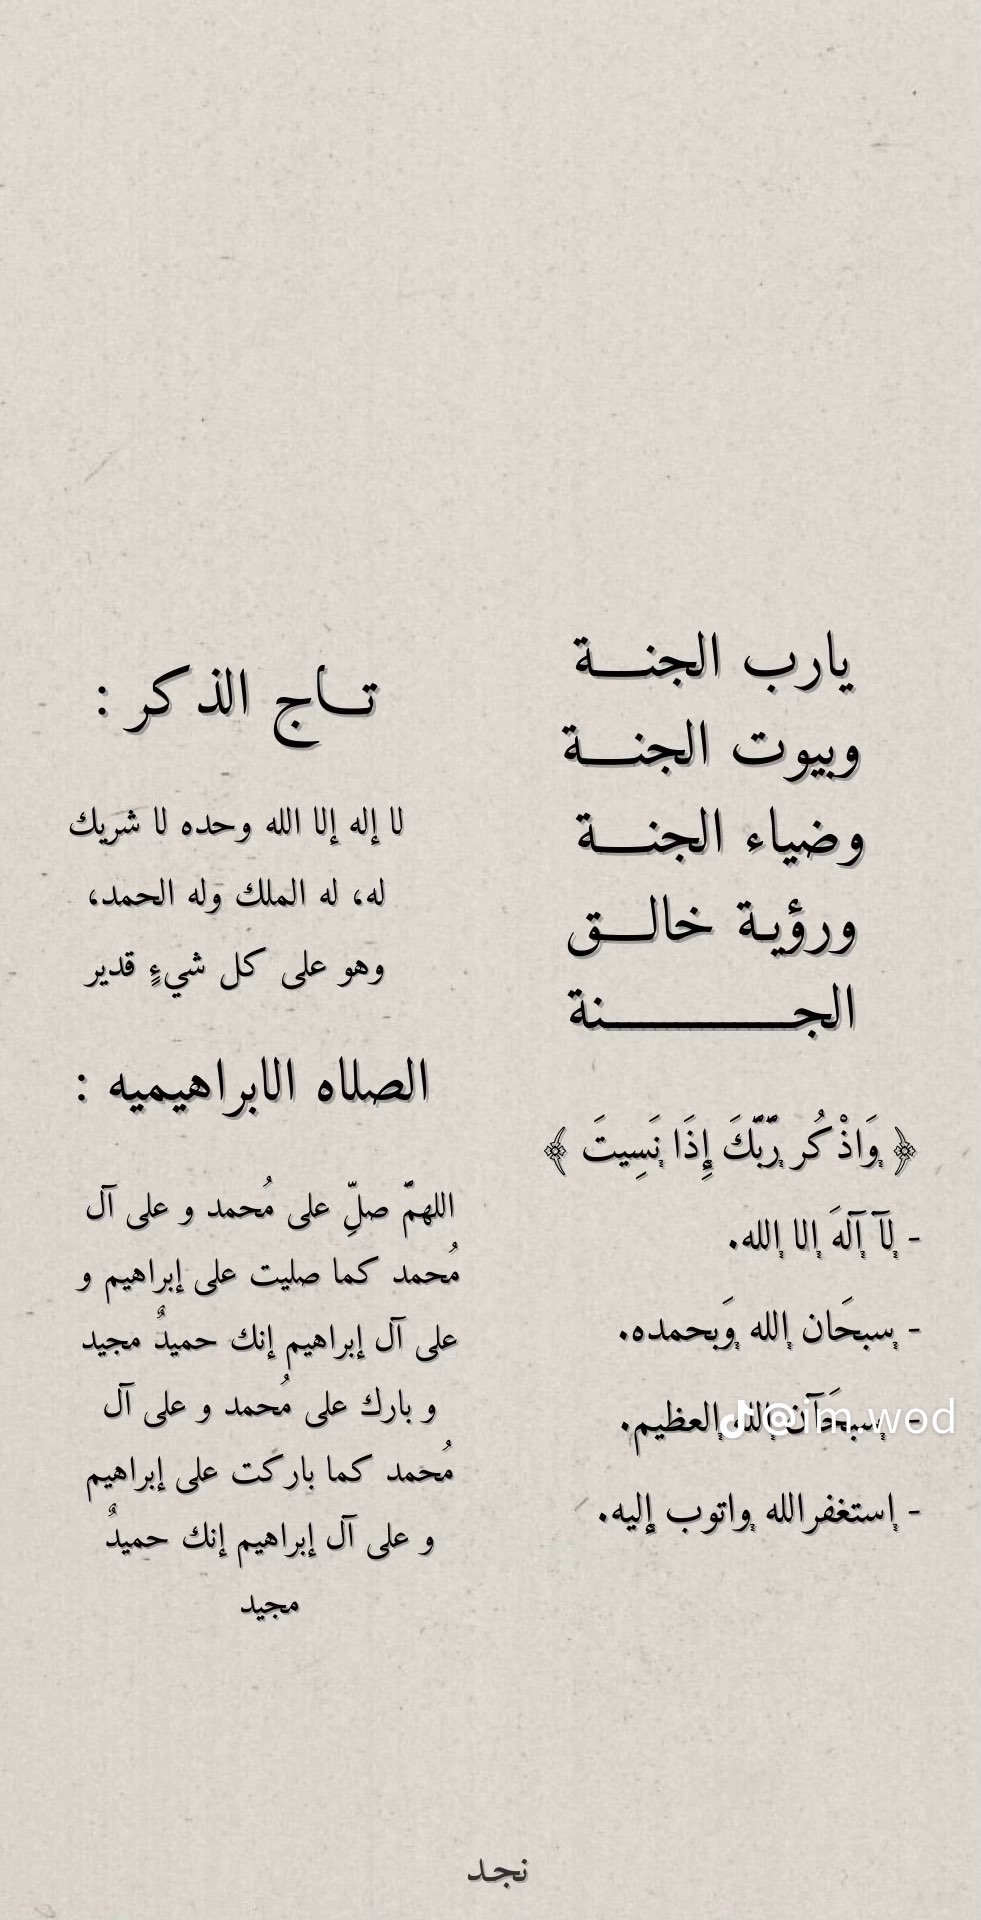 يارب الجنـــة
وبيوت الجنـــة
وضياء الجنـــة
ورؤيـة خالـــق
الجـــــــــــنة
﴿ وَاذْكُر رَّبَّكَ إِذَا نَسِيتَ ﴾
- لآ آلهَ إلا الله.
- سبحَان الله وَبحمده.
- سبحَآن الله العظيم.
- إستغفرالله واتوب إليه.
@im.wod
تـــاج الذكر :
لا إله إلا الله وحده لا شريك
له، له الملك وله الحمد،
وهو على كل شيءٍ قدير
الصلاه الابراهيميه :
اللهمّ صلِّ على مُحمد و على آل
مُحمد كما صليت على إبراهيم و
على آل إبراهيم إنك حميدٌ مجيد
و بارك على مُحمد و على آل
مُحمد كما باركت على إبراهيم
و على آل إبراهيم إنك حميدٌ
مجيد
نجد